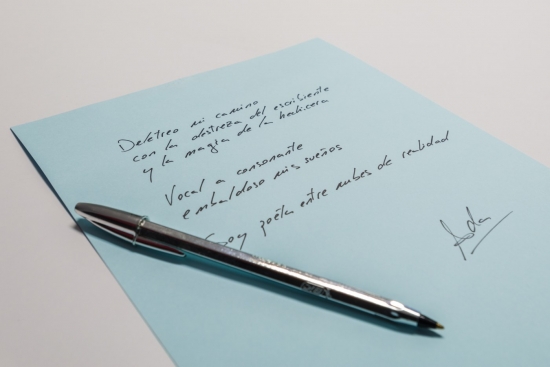 Deletreo mi camino
con la destreza del escribiente
y la magia de la hechicera
Vocal a consonante
embaldoso mis sueños
Soy poeta entre nubes de realidad